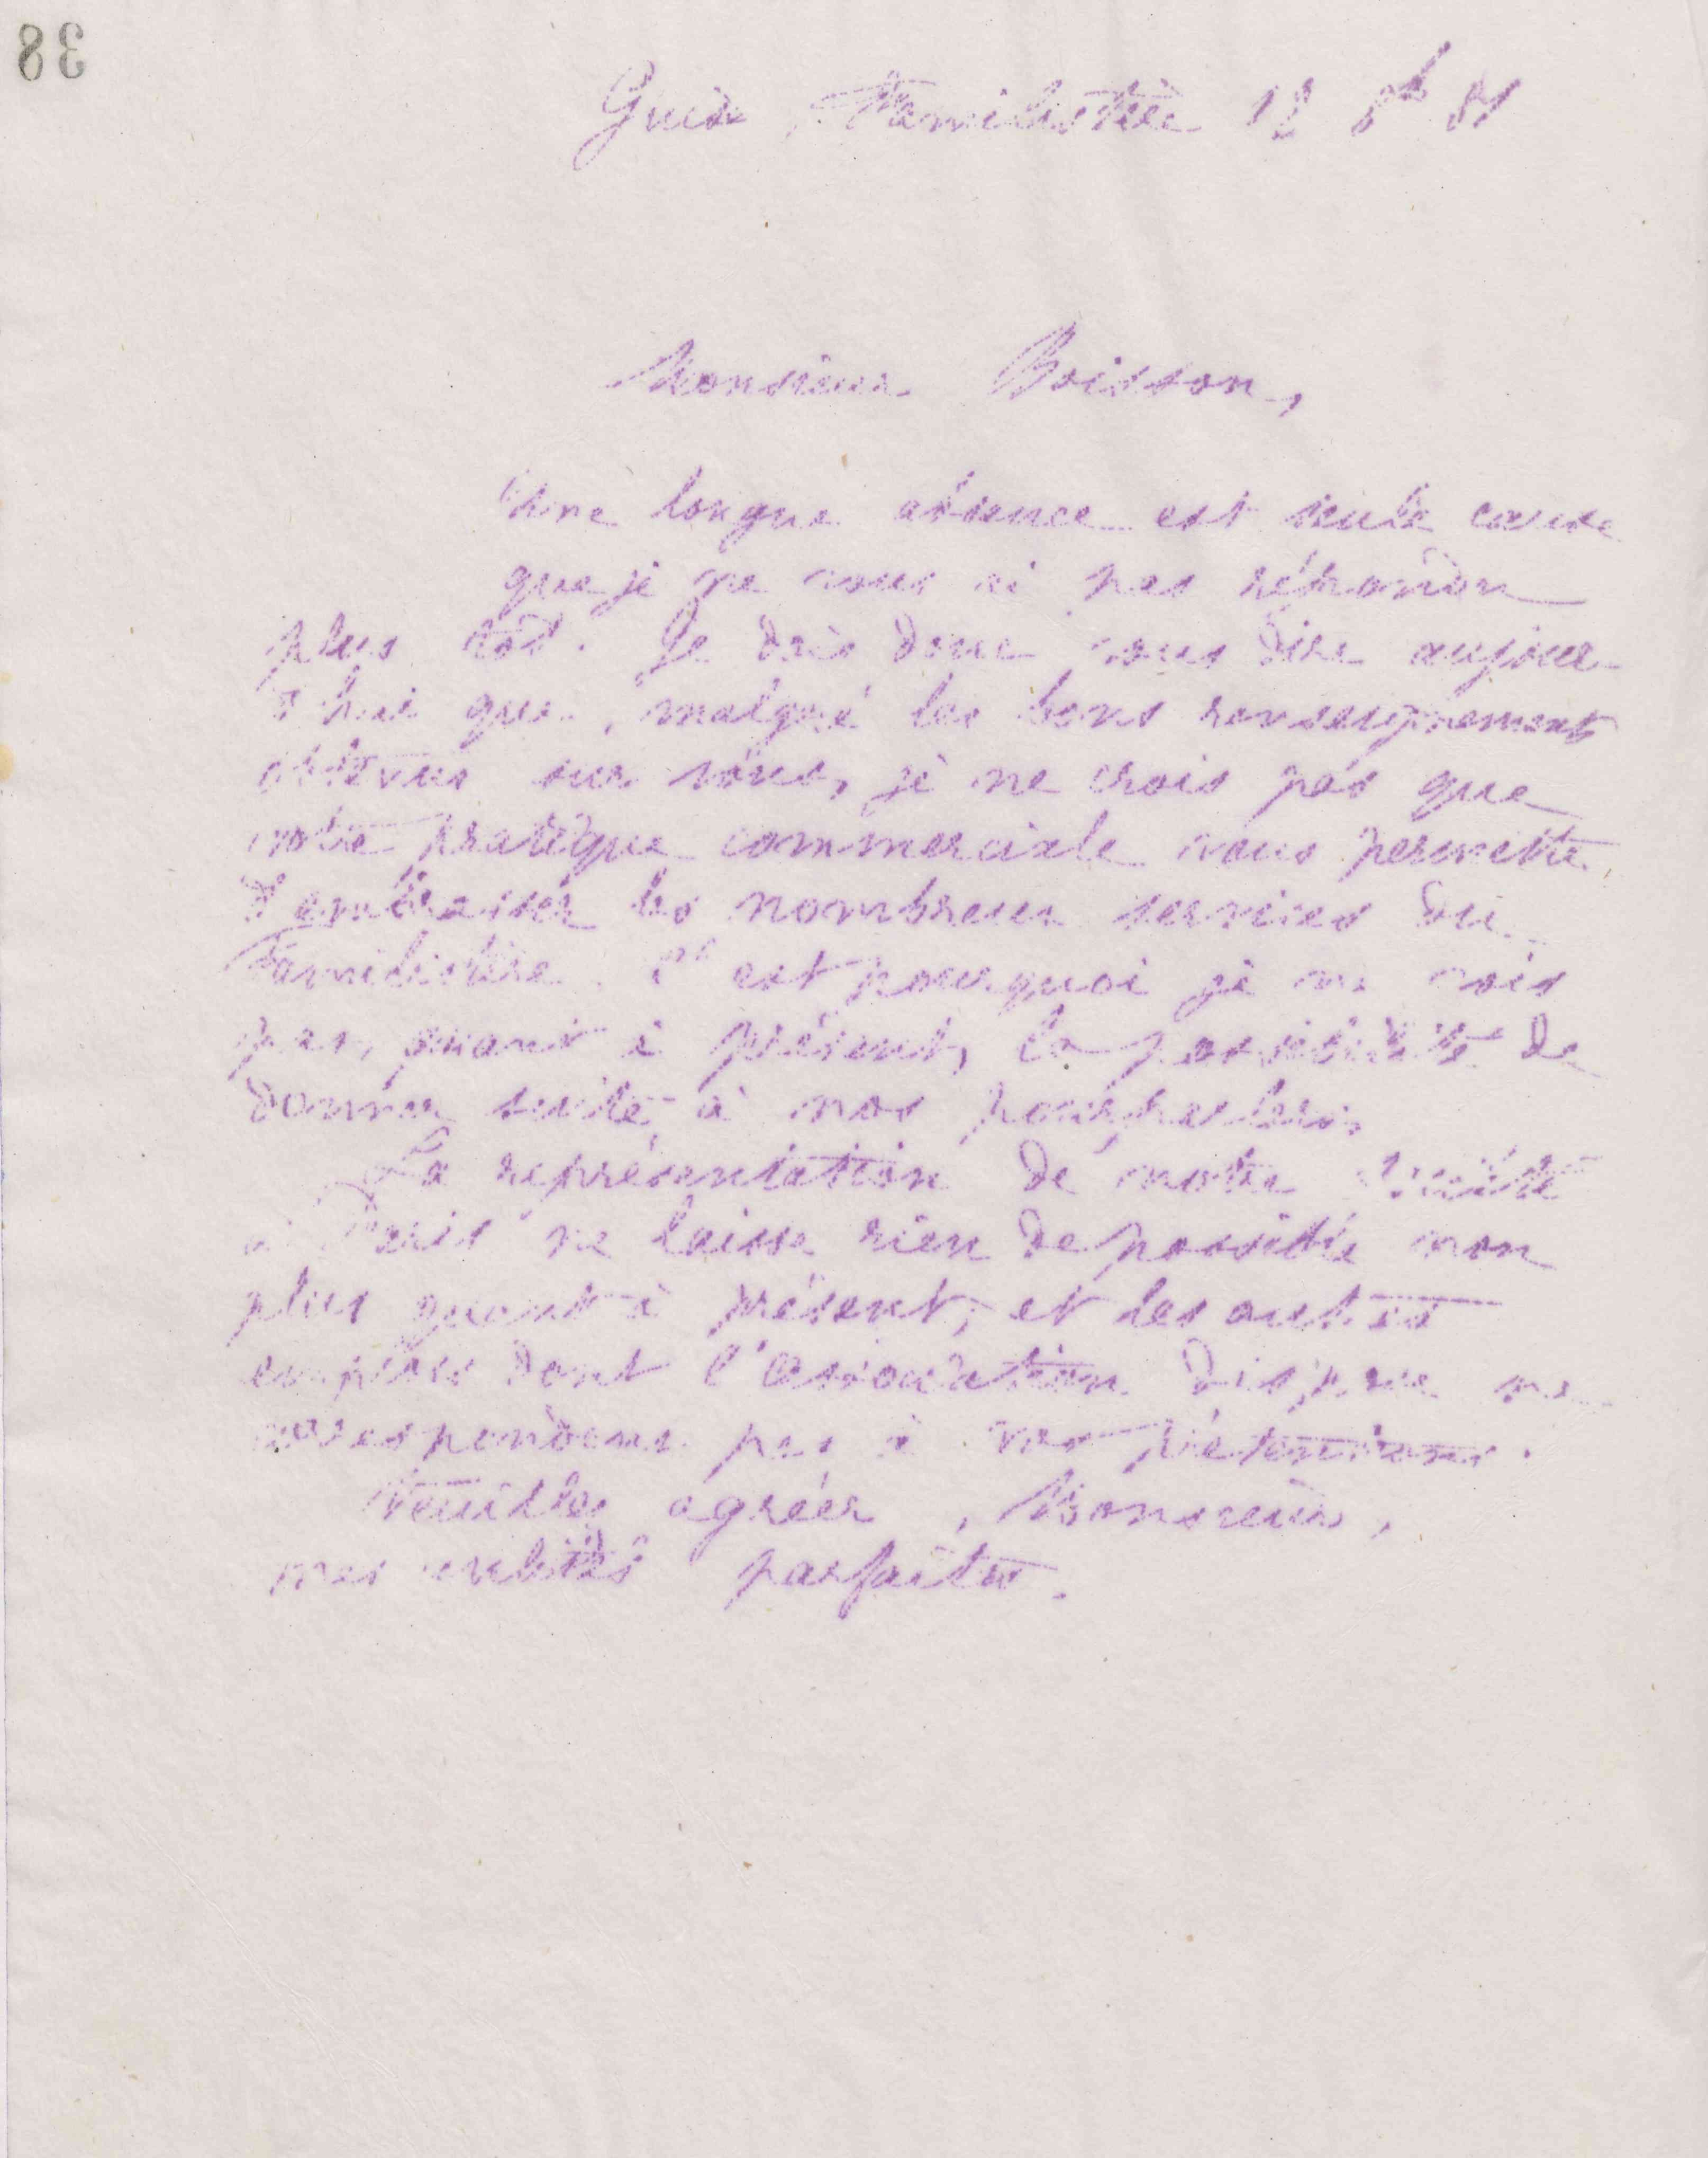 38
Guise, Familistère 12 8bre 81
Monsieur Boisson,
Une longue absence est seule cause
que je ne vous ai pas répondu
plus tôt. Je dois donc vous dire aujour
d'hui que, malgré les bons renseignements
obtenus sur vous, je ne crois pas que
votre pratique commerciale vous permette
d'embrasser les nombreux services du
Familistère. C'est pourquoi je ne vois
pas, quant à présent, la possibilité de
donner suite à nos pourparlers.
La représentation de notre Société
à Paris ne laisse rien de possible non
plus quant à présent, et les autres
emplois dont l'association dispose ne
correspondent pas à vos prétentions.
Veuillez agréer, Monsieur,
mes civilités parfaites.